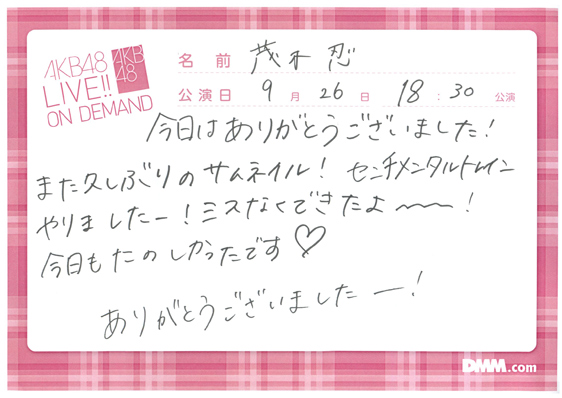 AKB48
LIVE!!
ON DEMAND
AKB
48
名前 茂木忍
公演日 9月26日 18:30 公演
今日はありがとうございました!
また久しぶりのサムネイル! センチメンタルトレイン
やりましたー!ミスなくできたよ〜〜!
今日もたのしかったです♡
ありがとうございましたー!
DMM.com